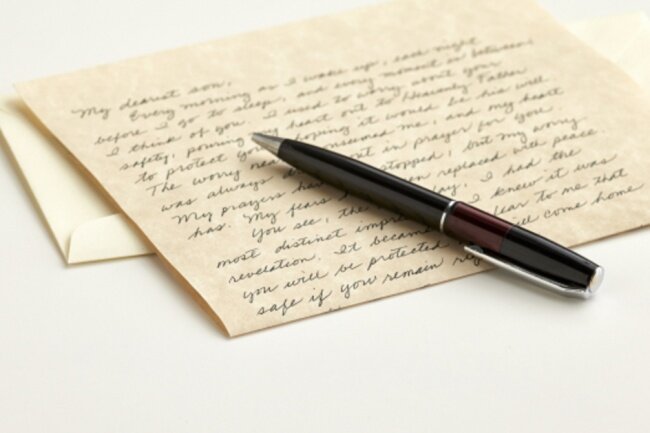 My dearest son,
Every morning as I wake up, each night
before I go to sleep, and every moment in between
I think of you. I used to worry about your
safety, pouring my heart out to Heavenly Father
to protect you, hoping it would be his will
The worry near consumed me, and my heart
was always out in prayer for you.
My prayers have stopped, but my worry
has. My fears been replaced with peace.
You see, the day, I had the
most distinct impre I knew it was
revelation. It became clear to me that
you will be protected will come home
safe if you remain